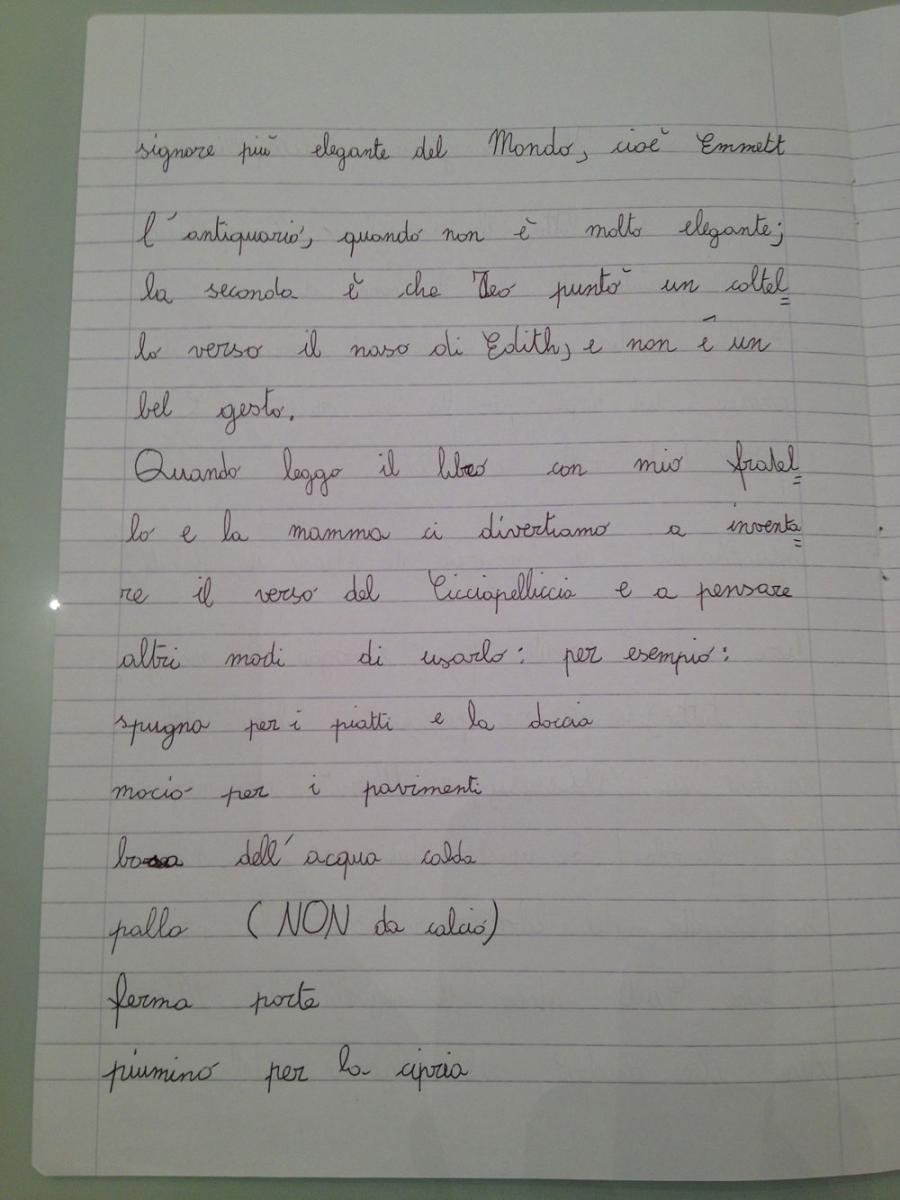 signore più elegante del Mondo, cioè Emmett
l'antiquario, quando non è molto elegante;
la seconda è che Teo puntò un coltel=
lo verso il naso di Edith, e non é un
bel gesto.
Quando leggo il libro con mio fratel=
lo e la mamma ci divertiamo a inventa=
re il verso del Cicciapelliccia e a pensare
altri modi di usarlo: per esempio:
spugna per i piatti e la doccia
mocio per i pavimenti
borsa dell'acqua calda
palla (NON da calcio)
ferma porte
piumino per la cipria